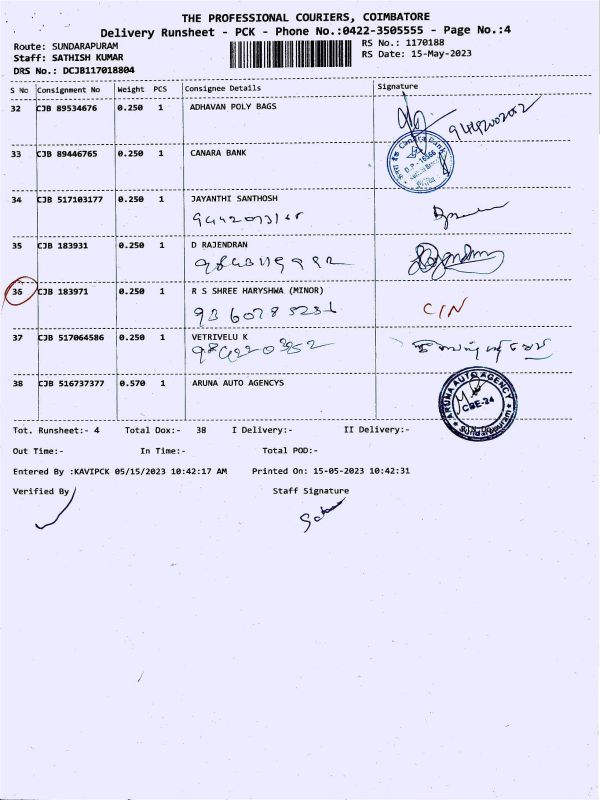 THE PROFESSIONAL COURIERS, COIMBATORE
Delivery Runsheet - PCK - Phone No.:0422-3505555 - Page No.:4
Route: SUNDARAPURAM RS No.: 1170188
Staff: SATHISH KUMAR RS Date: 15-May-2023
DRS No.: DCJB117018804
S No Consignment No Weight PCS Consignee Details Signature
32 CJB 89534676 0.250 1 ADHAVAN POLY BAGS
33 CJB 89446765 0.250 1 CANARA BANK
Canara Bank
34 CJB 517103177 0.250 1 JAYANTHI SANTHOSH
35 CJB 183931 0.250 1 D RAJENDRAN
36 CJB 183971 0.250 1 R S SHREE HARYSHWA (MINOR)
9360785236 C/N
37 CJB 517064586 0.250 1 VETRIVELU K
38 CJB 516737377 0.570 1 ARUNA AUTO AGENCYS
ARUNA AUTO AGENCY
CBE-24
Sundarapuram
Tot. Runsheet:- 4 Total Dox:- 38 I Delivery:- II Delivery:-
Out Time:- In Time:- Total POD:-
Entered By :KAVIPCK 05/15/2023 10:42:17 AM Printed On: 15-05-2023 10:42:31
Verified By Staff Signature